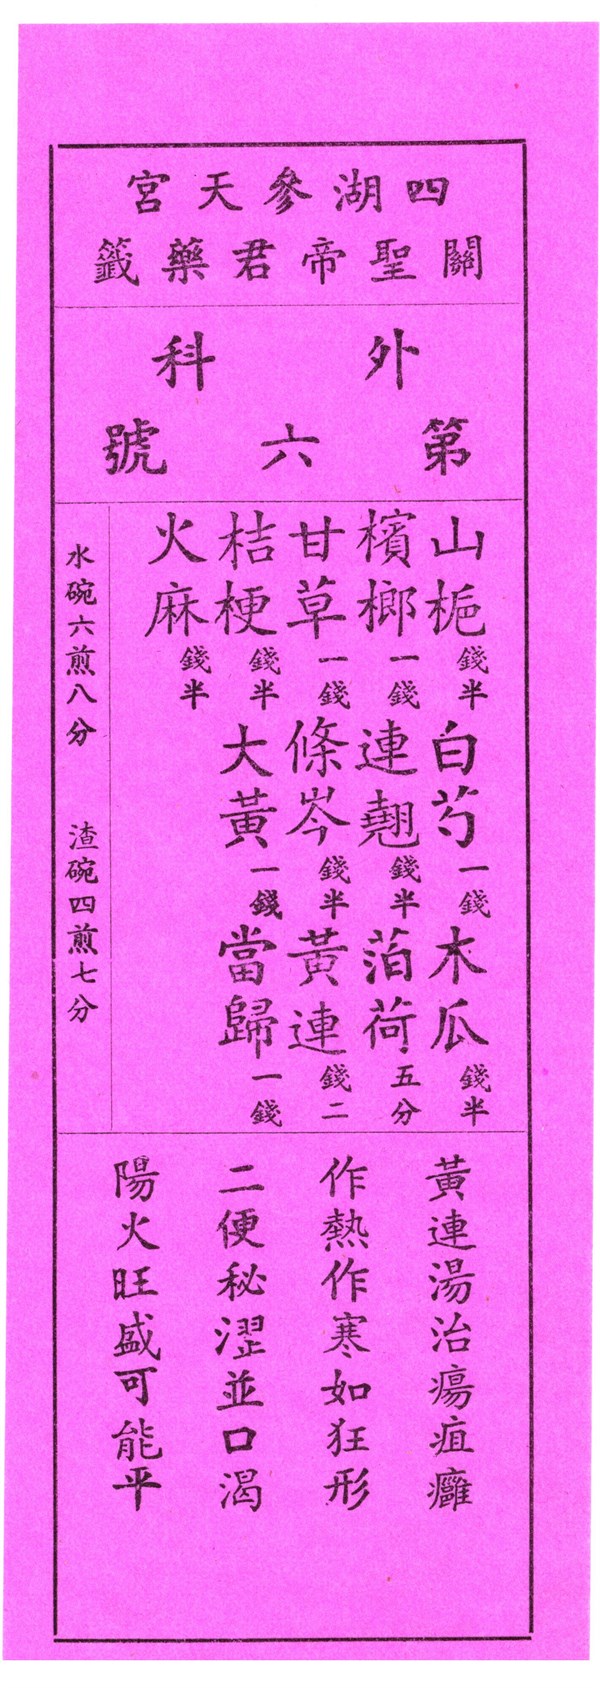 四湖參天宮
關聖帝君藥籤
外科
第六號
山梔錢半 白芍一錢 木瓜錢半
檳榔一錢 連翹錢半 萡荷五分
甘草一錢 條岑錢半 黃連錢二
桔梗錢半 大黃一錢 當歸一錢
火麻錢半
水碗六煎八分 渣碗四煎七分
黃連湯治瘍疽癰
作熱作寒如狂形
二便秘澀並口渴
陽火旺盛可能平